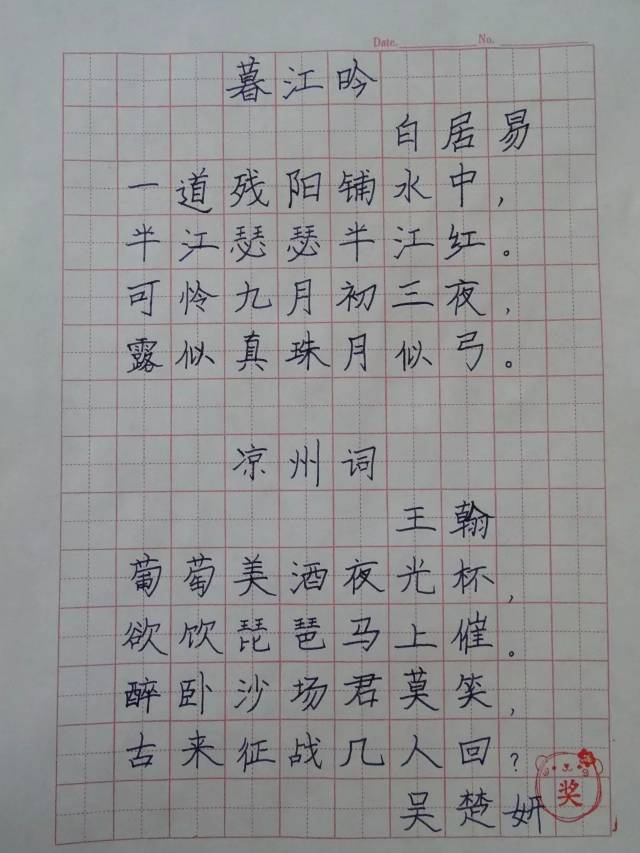 Date. No.
暮江吟
白居易
一道残阳铺水中，
半江瑟瑟半江红。
可怜九月初三夜，
露似真珠月似弓。
凉州词
王翰
葡萄美酒夜光杯，
欲饮琵琶马上催。
醉卧沙场君莫笑，
古来征战几人回？
奖
吴楚妍